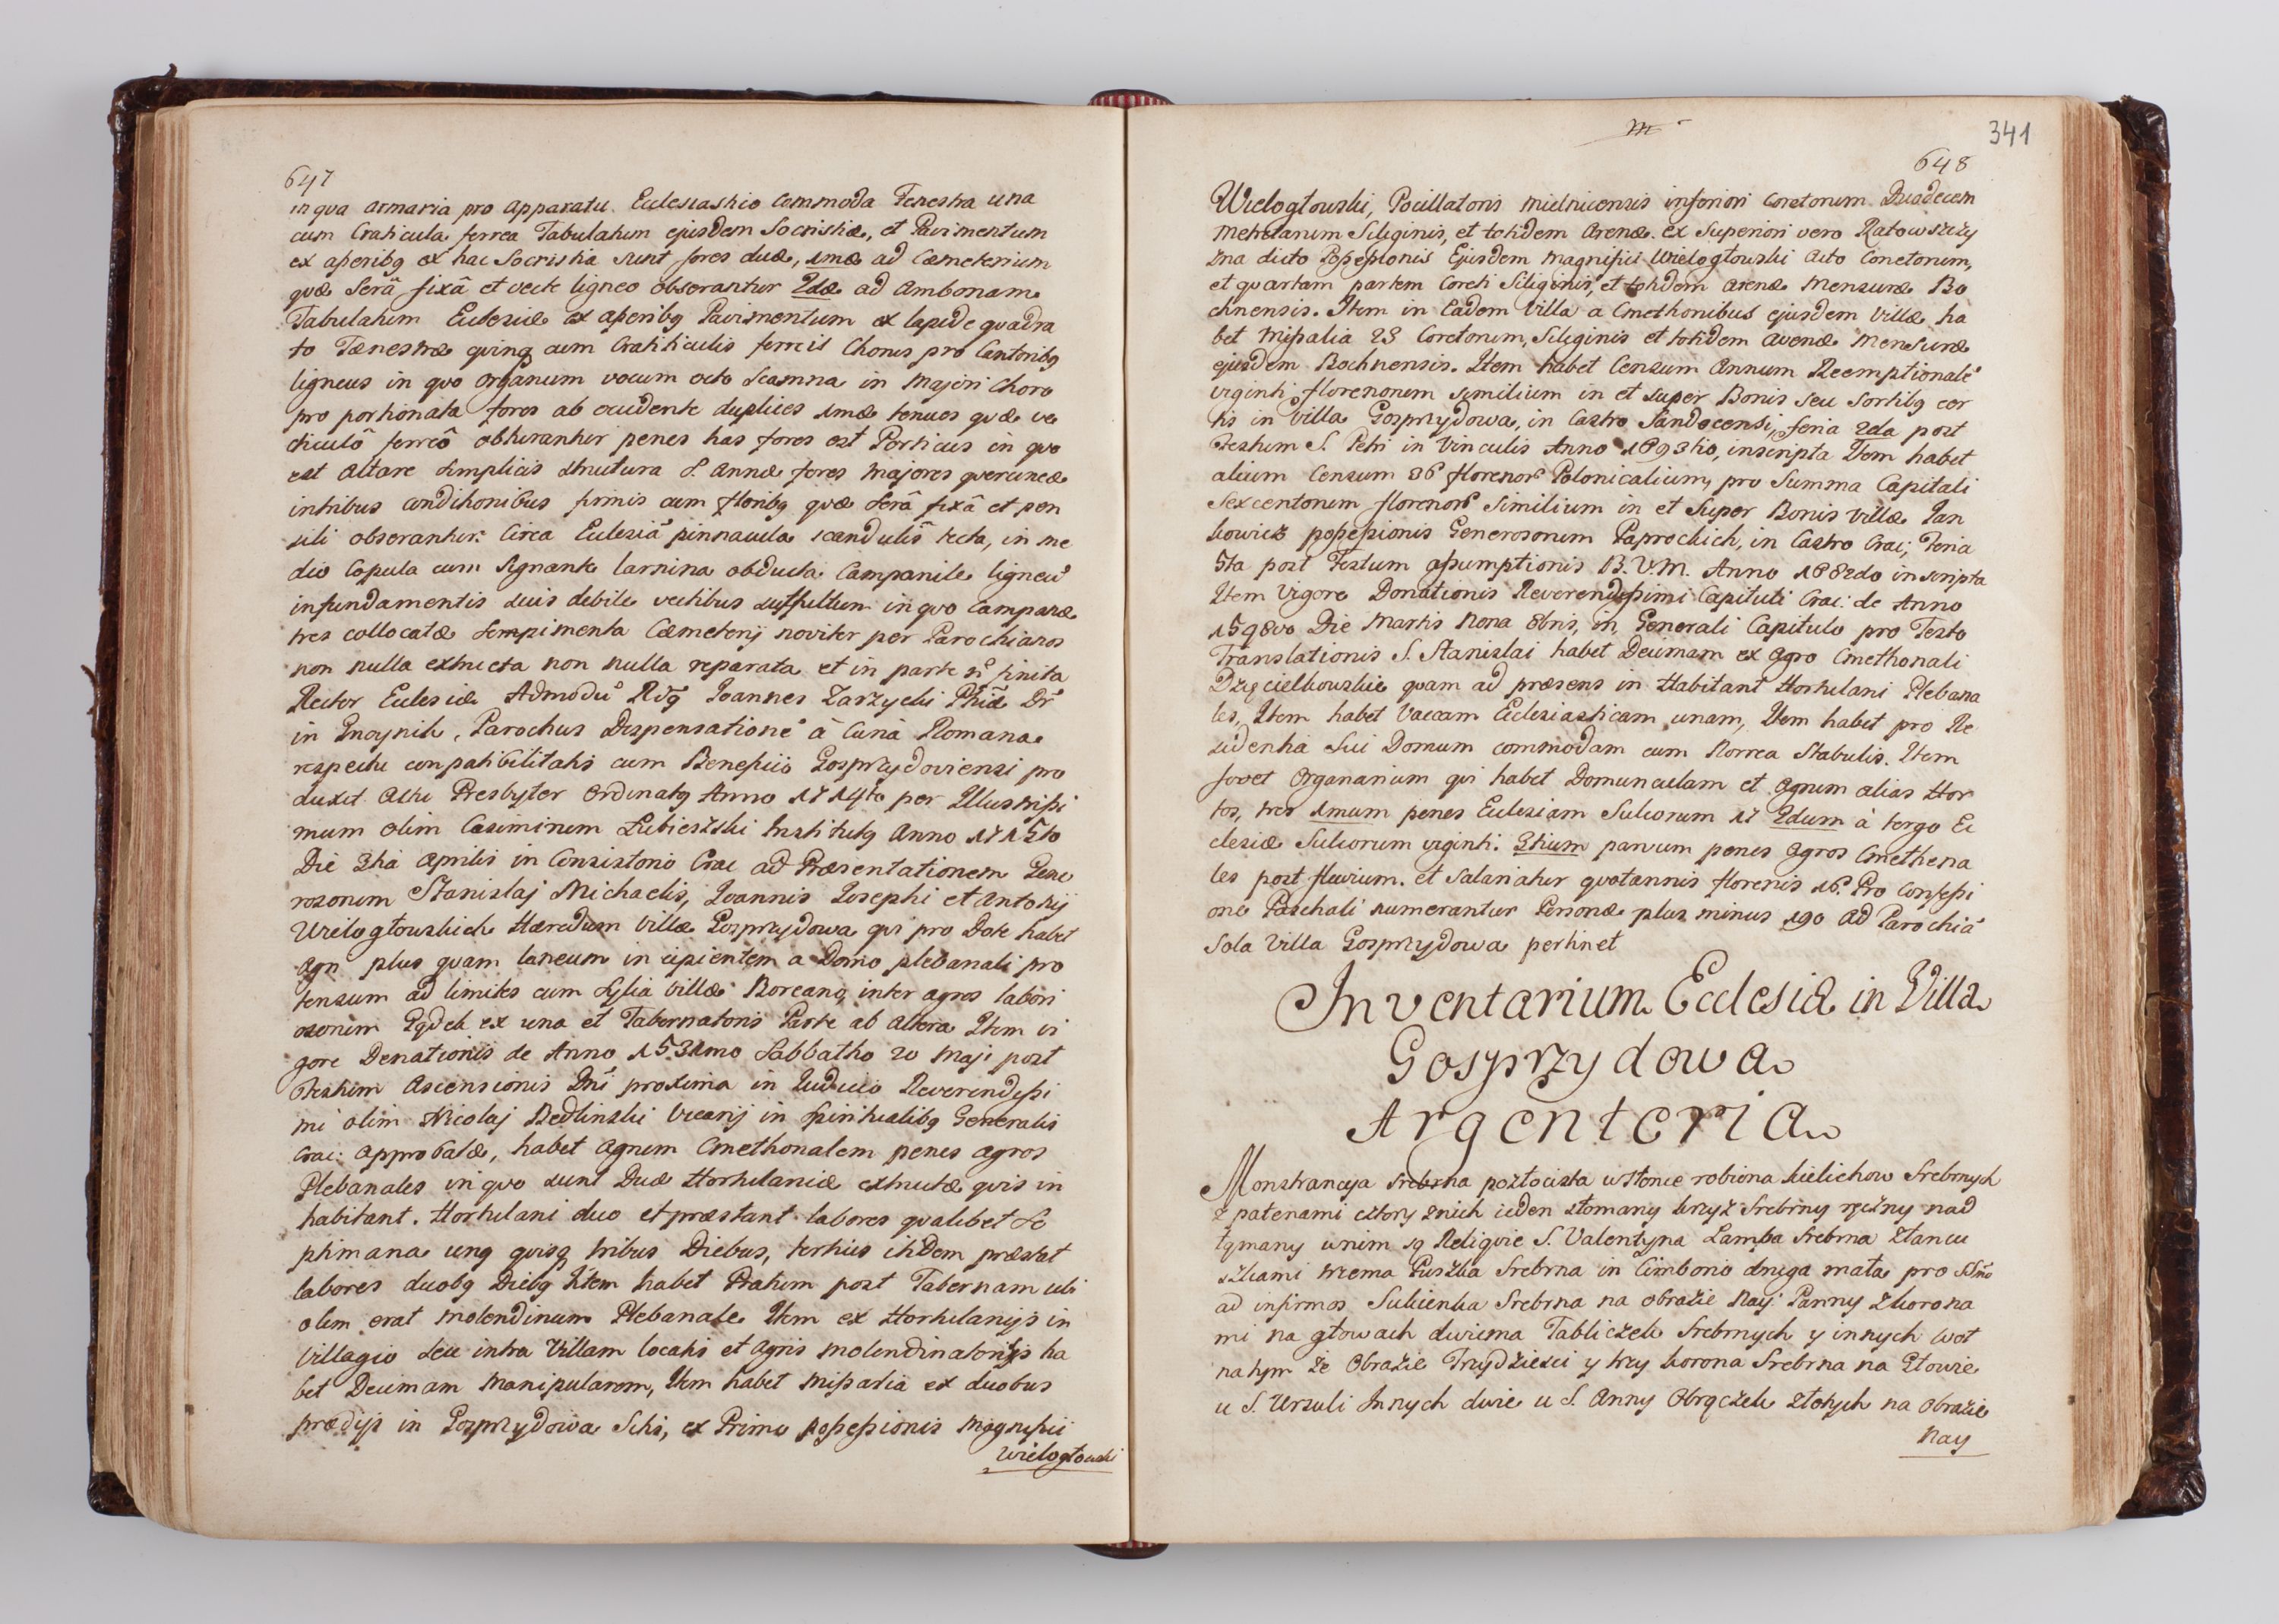 647
in qva armaria pro apparatu Ecclesiastico commoda Fenestra una
cum Craticula ferrea Tabulatum ejusdem Socristiæ, et Pavimentum
ex aßeribg ex hac Socristia sunt fores duæ, 1mæ ad Cæmeterium
qvæ Serâ fixâ et vecte ligneo obserantur 2dæ ad Ambonam
Tabulatum Ecclesiæ ex aßeribg Pavimentum ex lapide qvadra
to Fænestræ qvinq cum Cratticulis ferreis Chorus pro Cantoribg
ligneus in qvo Organum vocum octo Scamna in Majori Choro
pro portionata fores ab occidente duplices 1mæ tenues qvæ ve
cticulô ferreô obturantur penes has fores est Porticus in qvo
est Altare simplicis structura S. Annæ fores Majores qverceneæ
intribus conditionibus firmis cum floribg qvæ serâ fixâ et pen
sili obserantur. Circa Ecclesiã pinnacula scandulis tecta, in me
dio Copula cum Signante lamina obducta Campanile ligneũ
infundamentis suis debile vectibus suffultum in qvo Campanæ
tres collocatæ Sempimenta Cæmeterij noviter per Parochianos
non nulla extructa non nulla reparata et in parte nõ finita
Rector Ecclesiæ Admodũ Rvdg Joannes Zarzycki Phiæ Dr
in Gnoynik, Parochus Dispensationẽ à Curia Romana
respectu conpatibilitatis cum Beneficio Gosprzydoviensi pro
duxit. Actu Presbyter Ordinatg Anno 1714to per Illustrißi
mum olim Casimirum Łubieński Institutg Anno 1715to
Die 3tia Aprilis in Consistorio Crac ad Præsentationem Gene
rosorum Stanislaj Michaelis, Joannis Josephi et Antonij
Wielogłowskich Hæredum Villæ Gosprzydowa qvi pro Dote habet
Agr plus qvam laneum incipientem a Domo plebanali pro
tensum ad limites cum Sylia Villæ Boreano, inter agros labori
osorum Gądek ex una et Tabernatoris Parte ab altera Item vi
gore Donationis de Anno 1531mo Sabbatho 20 Maji post
Festum Ascensionis Dni proxima in Judicio Reverendißi
mi olim Nicolaj Bedlinski Vicarij in Spiritualibg Generalis
Crac: approbatæ, habet Agrum Cmethonalem penes agros
Plebanales in qvo sunt Duæ Hortulaniæ extructæ qvis in
habitant. Hortulani duo et præstant labores qvalibet Se
ptimana ung qvisq tribus Diebus, tertius itidem præstat
labores duobg Diebg Item habet Pratum post Tabernam ubi
olim erat molendinum Plebanale Item ex Hortulanijs in
Villagio seu intra Villam locatis et Agris molendinatorijs ha
bet Decimam Manipularem, Item habet Mißalia ex duobus
prædijs in Gosprzydowa Sitis, ex Primo poßeßionis Magnifici
Wielogłowski
m
341
648
Wielogłowski, Pocillatoris Mielnicensis inferiori Coretorum Duodecem
Mehetarum Siliginis, et totidem Avenæ. ex Superiori vero Ratowszczy
zna dicto Poßeßionis Ejusdem Magnifici Wielogłowski Octo Coretorum,
et qvartam partem Coreti Siliginis, et totidem avenæ Mensuræ Bo
chnensis. Item in Eadem Villa a Cmethonibus ejusdem Villæ ha
bet Mißalia 23 Coretorum, Siliginis et totidem avenæ Mensuræ
ejusdem Bochnensis. Item habet Censum Annum Reemptionalẽ
virginti florenorum similium in et super Bonis seu Sortibg cer
tis in Villa Gosprzydowa, in Castro Sandecensi, feria 2da post
Festum S. Petri in Vinculis Anno 1693tio, inscripta Item habet
alium Censum 36 florenorũ Polonicalium, pro Summa Capitali
Sexcentorum florenorũ Similium in et Super Bonis Villæ Jan
kowicz poßeßionis Generosorum Paprockich, in Castro Crac; Feria
5ta post Festum Aßumptionis B.V.M. Anno 1682do inscripta
Item Vigore Donationis Reverendißimi Capituli Crac: de Anno
1598vo Die Martis Nona 8bris, in Generali Capitulo pro Festo
Translationis S. Stanislai habet Decimam ex Agro Cmethonali
Dzięcielkowskie qvam ad præsens in Habitant Hortulani Plebana
les, Item habet Vaccam Ecclesiasticam unam, Item habet pro Re
sidentia Sui Domum commodam cum Horrea Stabulis. Item
fovet Organarium qvi habet Domunculam et Agrum alias Hor
tos, tres 1mum penes Ecclesiam Sulcorum 17 2dum à tergo Ec
clesiæ Sulcorum virginti. 3tium parvum penes Agros Cmethona
les post fluvium. et Salariatur qvotannis florenis 16. Pro Confeßi
one Paschali numerantur Personæ plus minus 190 Ad Parochiã
Sola Villa Gosprzydowa pertinet
Inventarium Ecclesiæ in Villa
Gosprzydowa
Argenteria
Monstrancya Srebrna pozłocista w słonie robiona kielichow Srebrnych
z patenami cztery znich ieden złomany krzyż Srebrny ręczny nad
łąmany wnim są Religvie S. Valentyna Lampa Srebrna złancu
szkami trzema Puszka Srebrna in Cimborio druga mała pro SSmo
ad infirmos Sukienka Srebrna na obrazie Nay: Panny zkorona
mi na głowach dwiema Tabliczek Srebrnych y innych wot
natym że Obrazie Trzydzieści y trzy korona Srebrna na Głowie
u S. Urszuli Innych dwie u S. Anny Obrączek złotych na obrazie
Nay